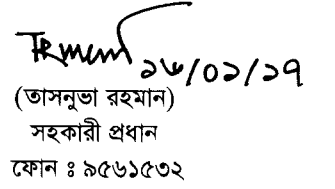 ১৬/০১/১৭
(তাসনুভা রহমান)
সহকারী প্রধান
ফোন ঃ ৯৫৬১৫৩২